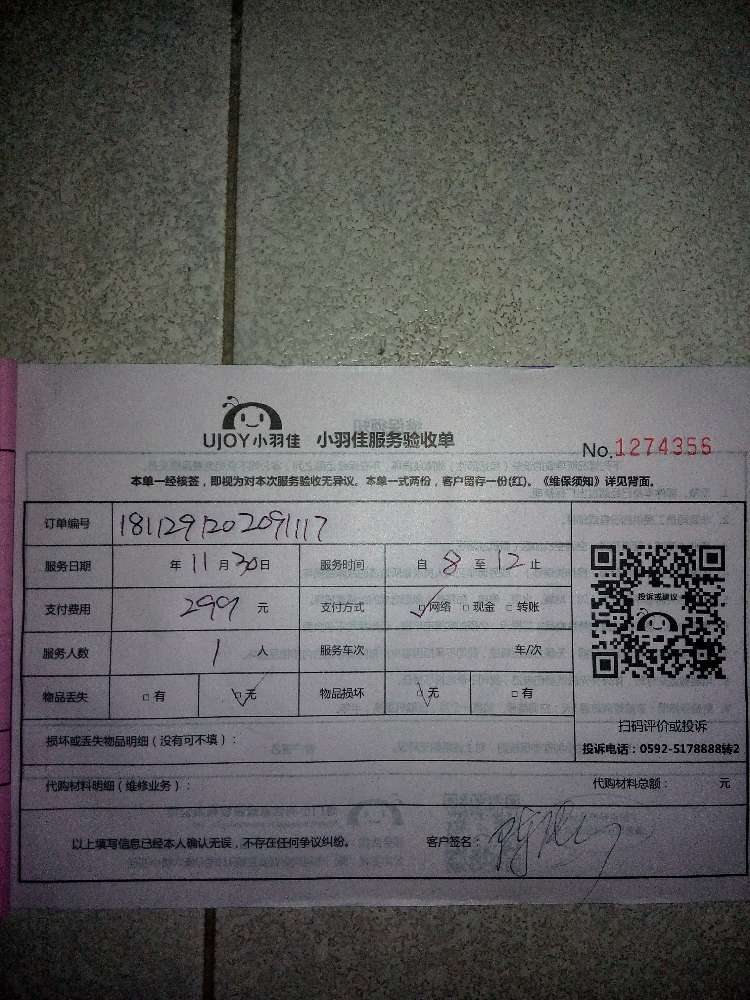 UJOY小羽佳 小羽佳服务验收单
No.1274356
本单一经核签，即视为对本次服务验收无异议。本单一式两份，客户留存一份(红)。《维保须知》详见背面。
订单编号 1811291202091117
服务日期 年11月30日 服务时间 自8至12止
支付费用 299元 支付方式 网络 现金 转账
投诉或建议
服务人数 1人 服务车次 车/次
物品丢失 有 无 物品损坏 无 有
扫码评价或投诉
损坏或丢失物品明细（没有可不填）：
投诉电话：0592-5178888转2
代购材料明细（维修业务）： 代购材料总额： 元
以上填写信息已经本人确认无误，不存在任何争议纠纷。 客户签名：